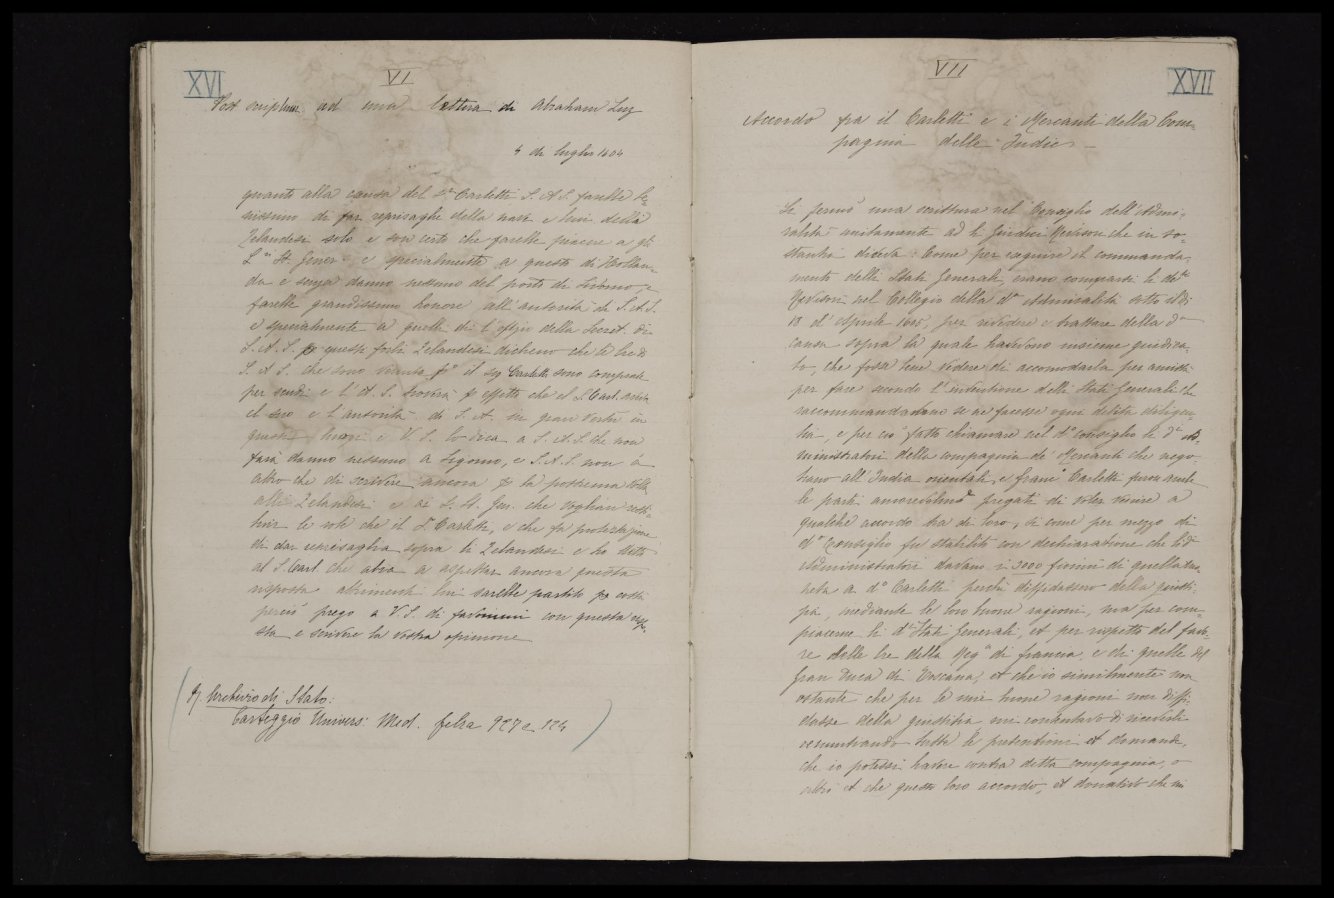 XVI
VI
Post scriptum ad una lettera di Abraham Luz
4 di luglio 1604
quanto alla causa del Sr Carletti S. A. S. farebbe be-
nissimo di far represaglie della nave e beni della
Zelandesi solo e son certo che farebbe piacere a gli
e specialmente a questi di Hollan-
da e senza danno nessuno del porto de Livorno, e
farebbe grandissimo honore all'autorità di S. A. S.
e specialmente a quelli di l'ofizio della Secret. di
S. A. S. questi Zelandesi dicheno che le lre di
S. A. S. che sono venute il Sig Carletti sono comprate
per scudi e l'A. S. troverà effetto che el S. Carl. avrà
el suo e l'autorità di S. A. in gran vertù in
questi e V. S. lo dica a S. A. S. che non
farà danno nessuno a Ligorno, e S. A. S. non à
altro che di scrivere ancora la postrema volta
alli Zelandesi e ai S. St. Gen. che vogliano resti-
tuir le robe che il Sr Carletti, e che fa protestazione
di dar represaglia sopra li Zelandesi e ho detto
al S. Carl. che abia a aspettar ancora questa
risposta altrimenti lui sarebbe partito costì
perciò prego a V. S. di favorirmi con questa rispo-
sta e scrivere la vostra opinione
R. Archivio di Stato:
Carteggio Univers: Med. felza 927 c. 124
VII
XVII
Accordo fra il Carletti e i Mercanti della Com-
pagnia delle Indie
Si fermò una scrittura nel Consiglio dell'Admi-
ralità unitamente ad li Giudici Revisori che in so-
stantia diceva: Come per exquire il commanda-
mento delli Stati Generali, erano comparsi li detti
Revisori nel Collegio della da Admiralità sotto il dì
18 d'Aprile 1605, per rividere e trattare della da
causa sopra la quale havevono insieme giudica-
to, che fossi bene vedere di accomodarla per amicitia
per fare secondo l'intentione delli Stati Generali che
raccommandadano se ne facesse ogni debita diligen-
tia, e per ciò fatto chiamare nel do consiglio li di Ad-
ministratori della compagnia de' Mercanti che nego-
tiano all'India orientale, e franco Carletti furno ambe
le parti amorevolmte pregati di voler venire a
qualche accordo tra di loro, si come per mezzo di
do Consiglio fu stabilito con dechiaratione che li di
Administratori davano 13000 fiorini di quella mo-
neta a do Carletti perchè diffidassero della giusti-
tia, mediante le loro buone ragioni, ma per com-
piacerne li di Stati Generali, et per rispetto del favo-
re delle lre della Regna di francia, e di quelle del
Gran Duca di Toscana, et che io similmente non
ostante che per le mie buone ragioni non diffi-
dasse della giustitia mi contentavo di riceverli
renuntiando tutte le pretentioni et domande,
che io potessi havere contra detta compagnia, o
altri et che questo loro accordo, et donativo che mi